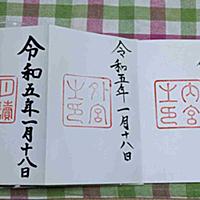 内宮
之印
令和五年一月十八日
外宮
之印
令和五年一月十八日